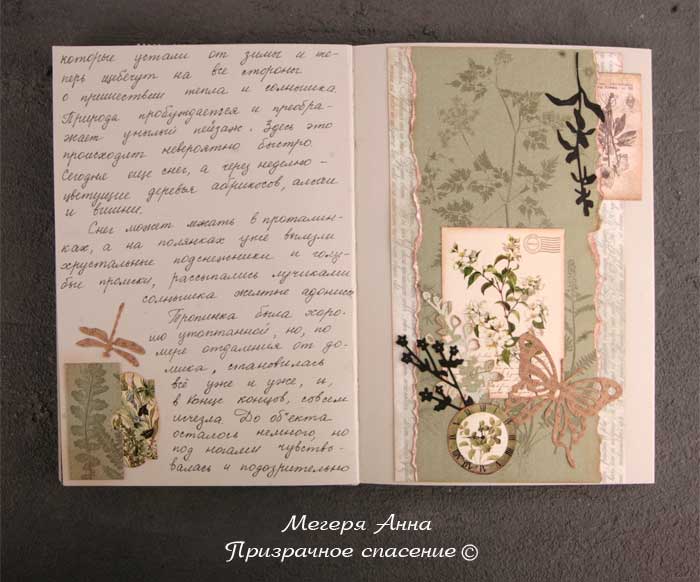 которые устали от зимы и те-
перь щебечут на все стороны
с пришествием тепла и солнышка
Природа пробуждается и преобра-
жает унылый пейзаж. Здесь это
происходит невероятно быстро.
Сегодня еще снег, а через неделю -
цветущие деревья абрикосов, алычи
и вишни.
Снег может лежать в проталин-
ках, а на полянках уже вылезли
хрустальные подснежники и голу-
бые пролески, рассыпались лучиками
солнышка желтые адонисы
Тропинка была хоро-
шо утоптанной, но, по
мере отдаления от до-
мика, становилась
всё уже и уже, и,
в конце концов, совсем
исчезла До объекта
осталось немного, но
под ногами чувство-
валась и подозрительно
Мегеря Анна
Призрачное спасение ©